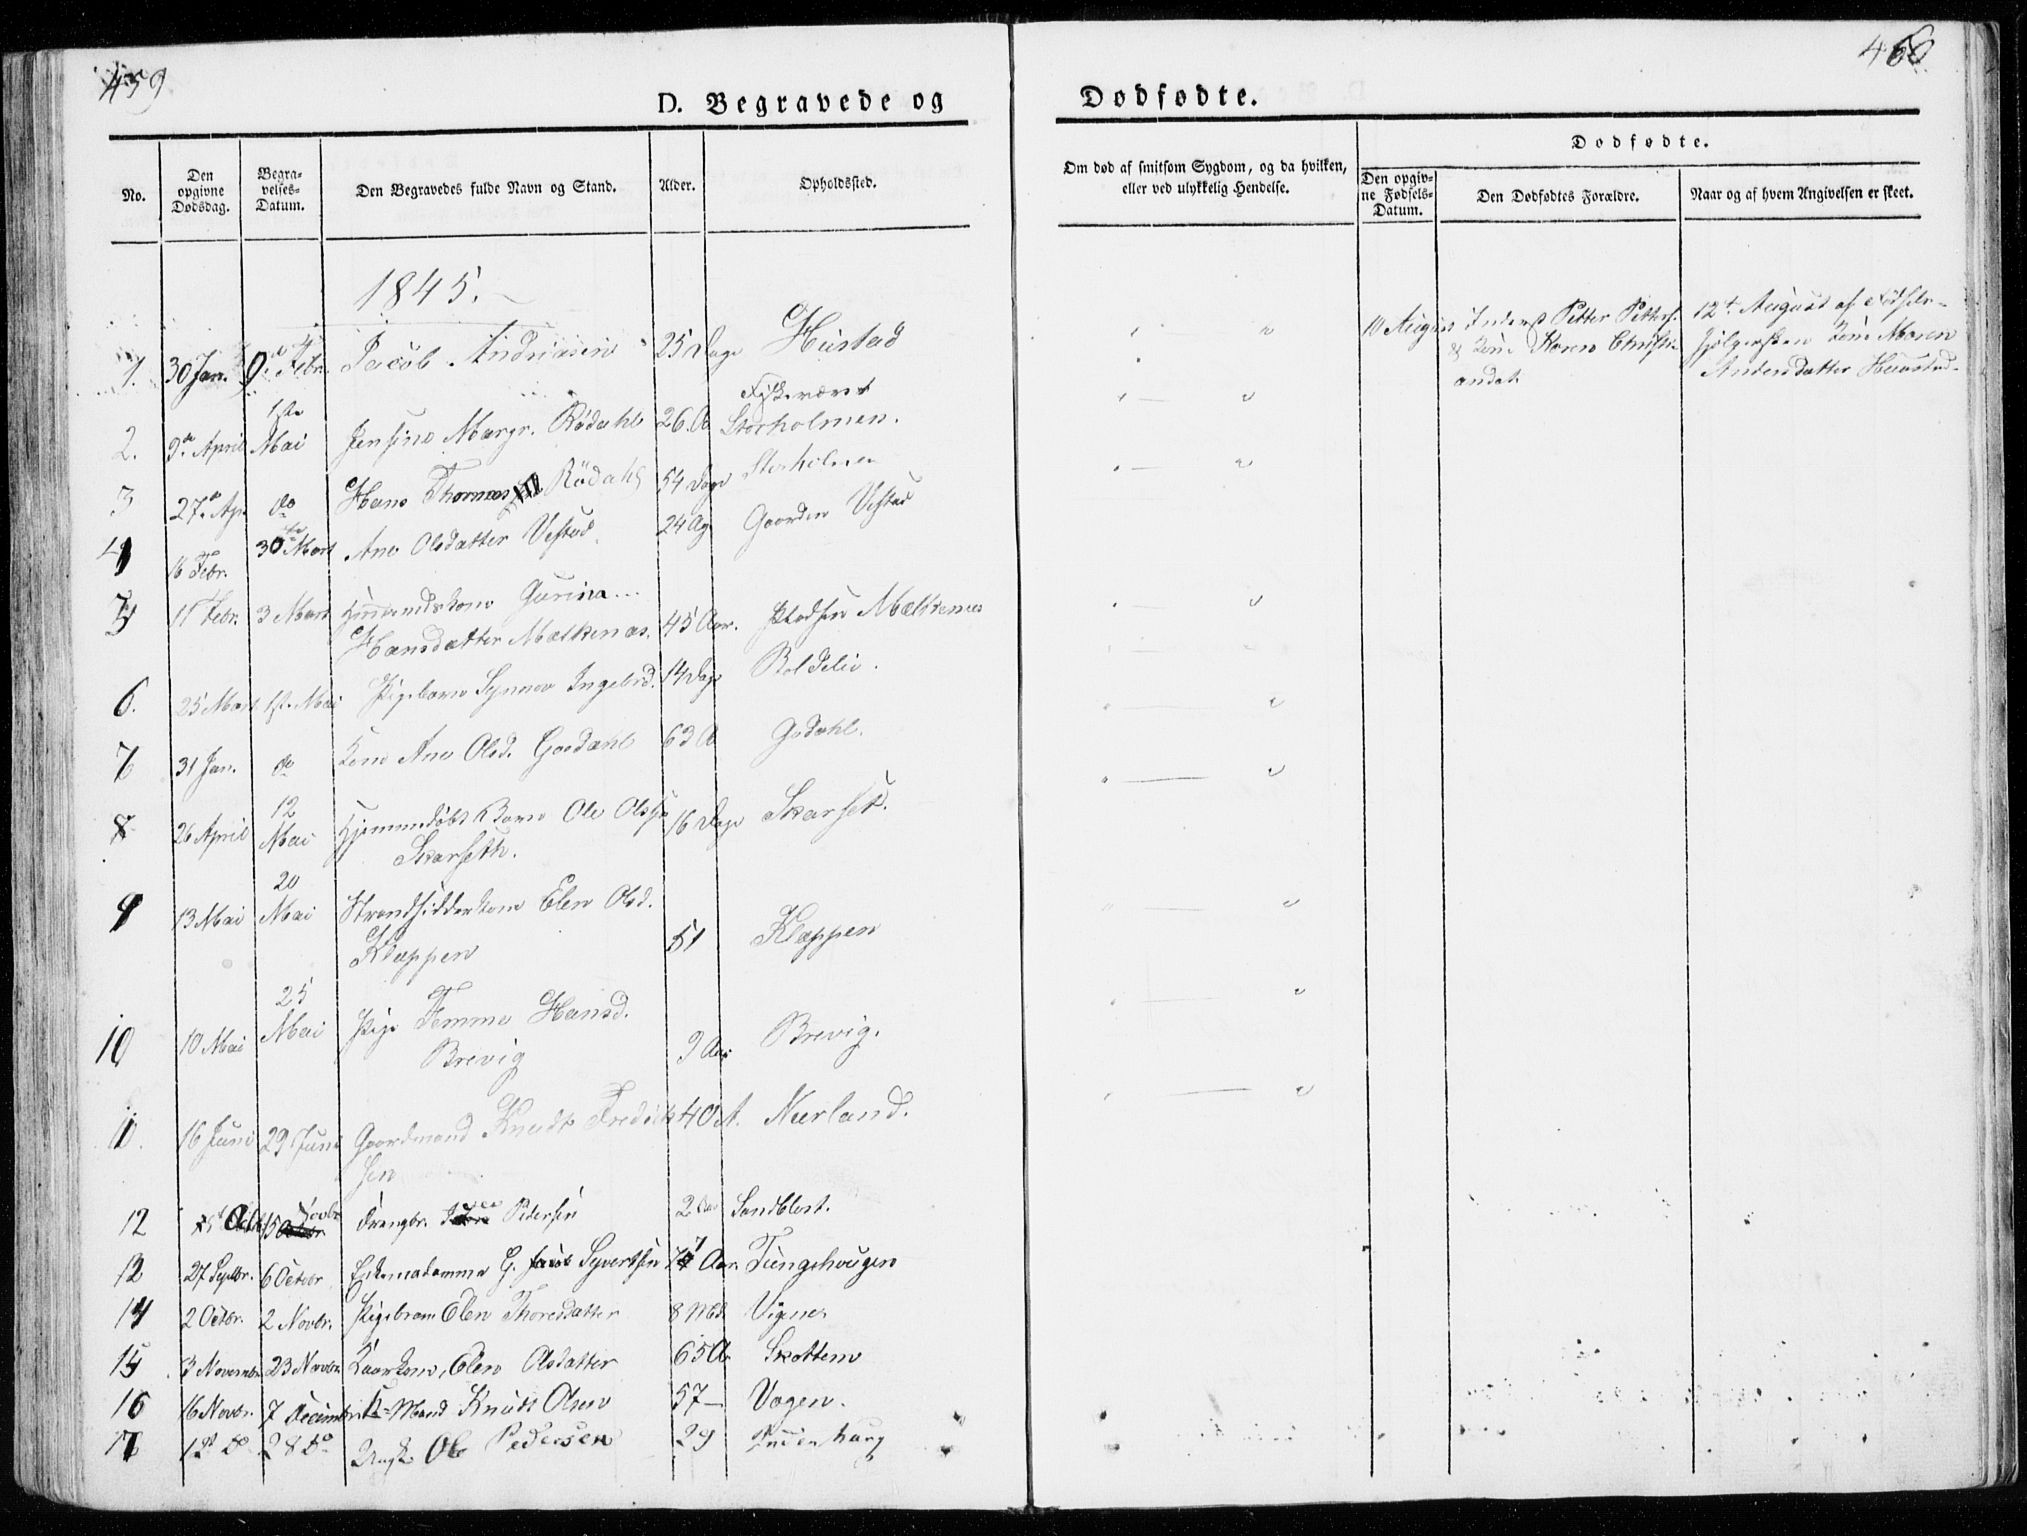 459
460
D. Begravede og
Dødfødte.
No.
Den opgivne Dødsdag.
Begravelses-Datum.
Den Begravedes fulde Navn og Stand.
Alder.
Opholdssted.
Om død af smitsom Sygdom, og da hvilken, eller ved ulykkelig Hendelse.
Dødfødte.
Den opgivne Fødsels-Datum.
Den Dødfødtes Forældre.
Naar og af hvem Angivelsen er skeet.
1845.
1. 30 Jan. Febr. Jacob Andreasen 25 Dage Hustad
10 August Petter Petters.
& Kone Maren Christi-
andat.
12t August af
Kone Maren
Andersdatter Huustad
2. April 1ste Mai Jensine Margr. Rødahl 26. A Fiskeværet
Storholmen.
3 27de Ap. do Hans Thomas Rødahl 54 Dage Storholmen
4 16 Febr. 30 Mart Ane Olsdatter Vestad 24 Ag Gaarden Vestad
5 11 Febr. 3 Mart Huusmandskone Gurina
Hansdatter Mælkenæs. 45 Aar. Pladsen Mælkenæs
6. 25 Mart 1ste Mai Pigebarn Synnev Ingebrd. 14 Dage Roldslie.
7 31 Jan. do Kone Ane Olsd. Goedahl 63 A Godahl.
8 26 April 12 Mai Hjemmedøbt Barn Ole Olssen
Skarseth. 16 Dage Skarset.
9 13 Mai 20 Mai Strandsidderkone Elen Olsd.
Klappen 51 Klappen
10 10 Mai 25 Mai Pige Femme Hansd.
Brevig 9 Aar Brevig.
11. 16 Juni 29 Juni Gaardmand Knudt Fredrik
sen 40 A. Nerland.
12 15 Novbr Drengbr. Pedersen 2 Aar Sandblost.
12 27 Septbr. 6 Octobr G. Syvertsen Aar. Tungehougen
14 2 Octbr. 2 Novbr. Pigebarn Elen Thoresdatter 8 Md. Vignes
15 3 Novembr 23 Novbr Kaarkone, Elen Olsdatter 65 A Skottem
16 16 Novbr. 7 Decimbr K-Mand Knudt Olsen 57 — Vagen.
17 1st Do 28 Do Ungk. Ole Pedersen 29